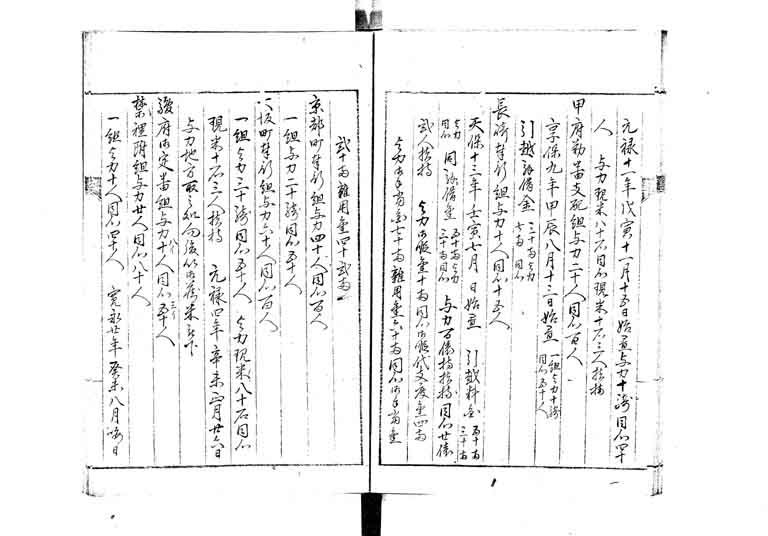 元禄十一年戊寅十一月十五日始置与力十騎同心四十
人　与力現米八十石同心現米十石三人扶持
甲府勤番支配組与力二十人同心百人
享保九年甲辰八月十三日始置　一組与力十騎同心五十人
引越諸備金　三十両与力　七両同心
長崎奉行組与力十人同心十五人
天保十三年壬寅七月　日始置　引越料金　五十両　三十両
与力同心　同諸備金　五十両与力　三十両同心　与力百俵持扶持同心廿俵
弐人扶持　与力御暇金十両同心御暇代支度金四両
与力御手当金七十両雑用金六十両同心御手当金
弐十両雑用金四十弐両
京都町奉行組与力四十人同心百人
一組与力二十騎同心五十人
大坂町奉行組与力六十人同心百人
一組与力三十騎同心五十人　与力現米八十石同心
現米十石三人扶持　元禄四年辛未正月廿六日
与力地方取之処向後御蔵米被下
駿府御定番組与力十人同心五十人
禁裡附組与力廿人同心八十人
一組与力十人同心四十人　寛永廿年癸未八月　日